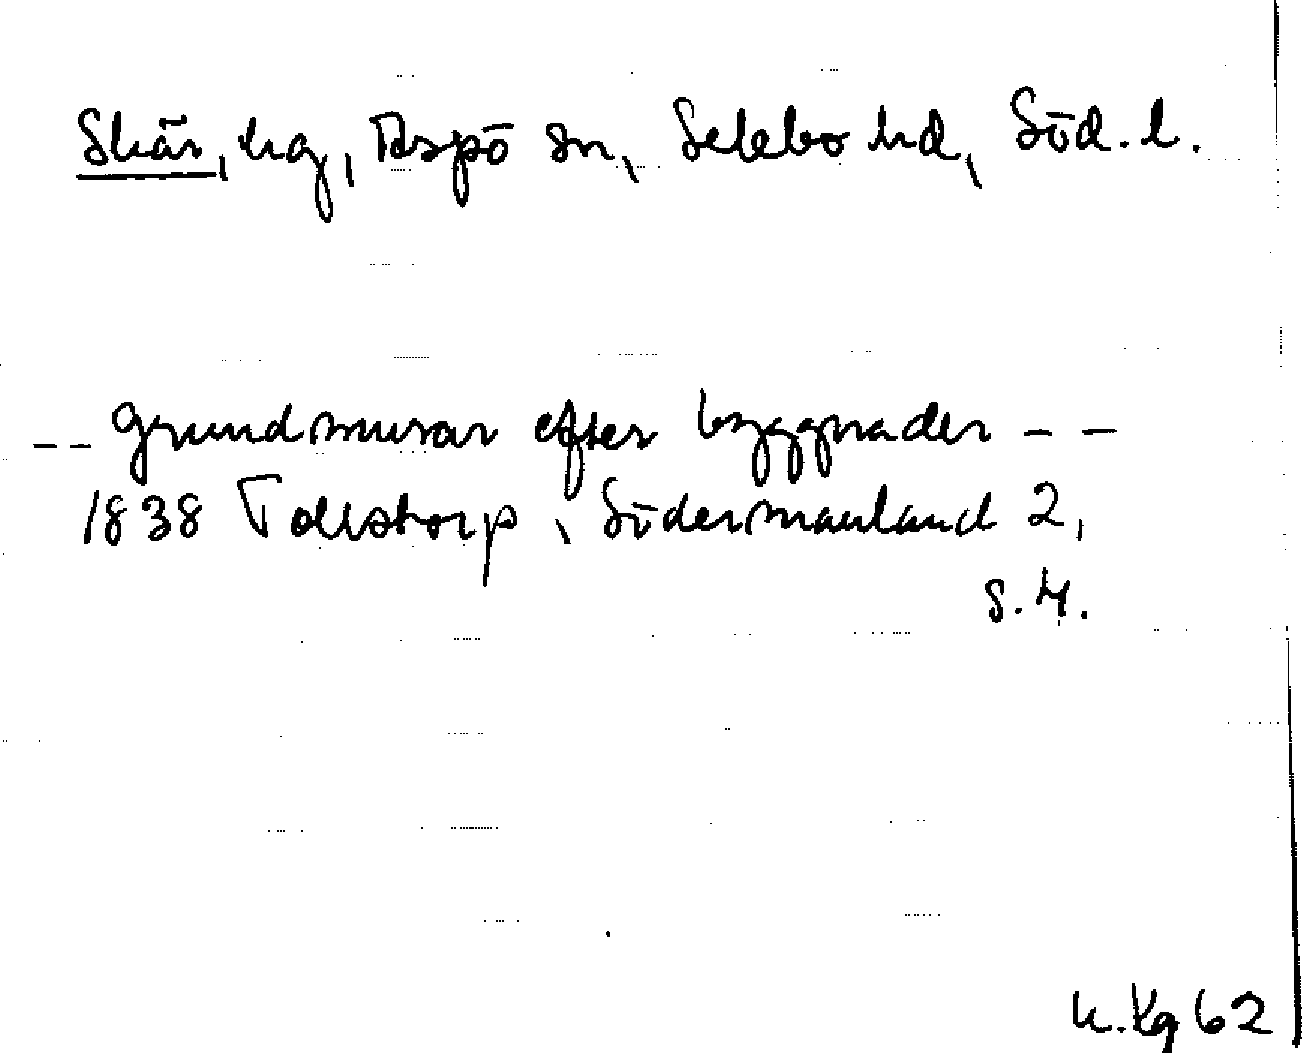 Skär, hg, Aspö sn, Selebo hd, Söd. l.
-- grundmurar efter byggnader --
1838 Tollstorp, Södermanland 2,
s. 4.
K. Kg 62